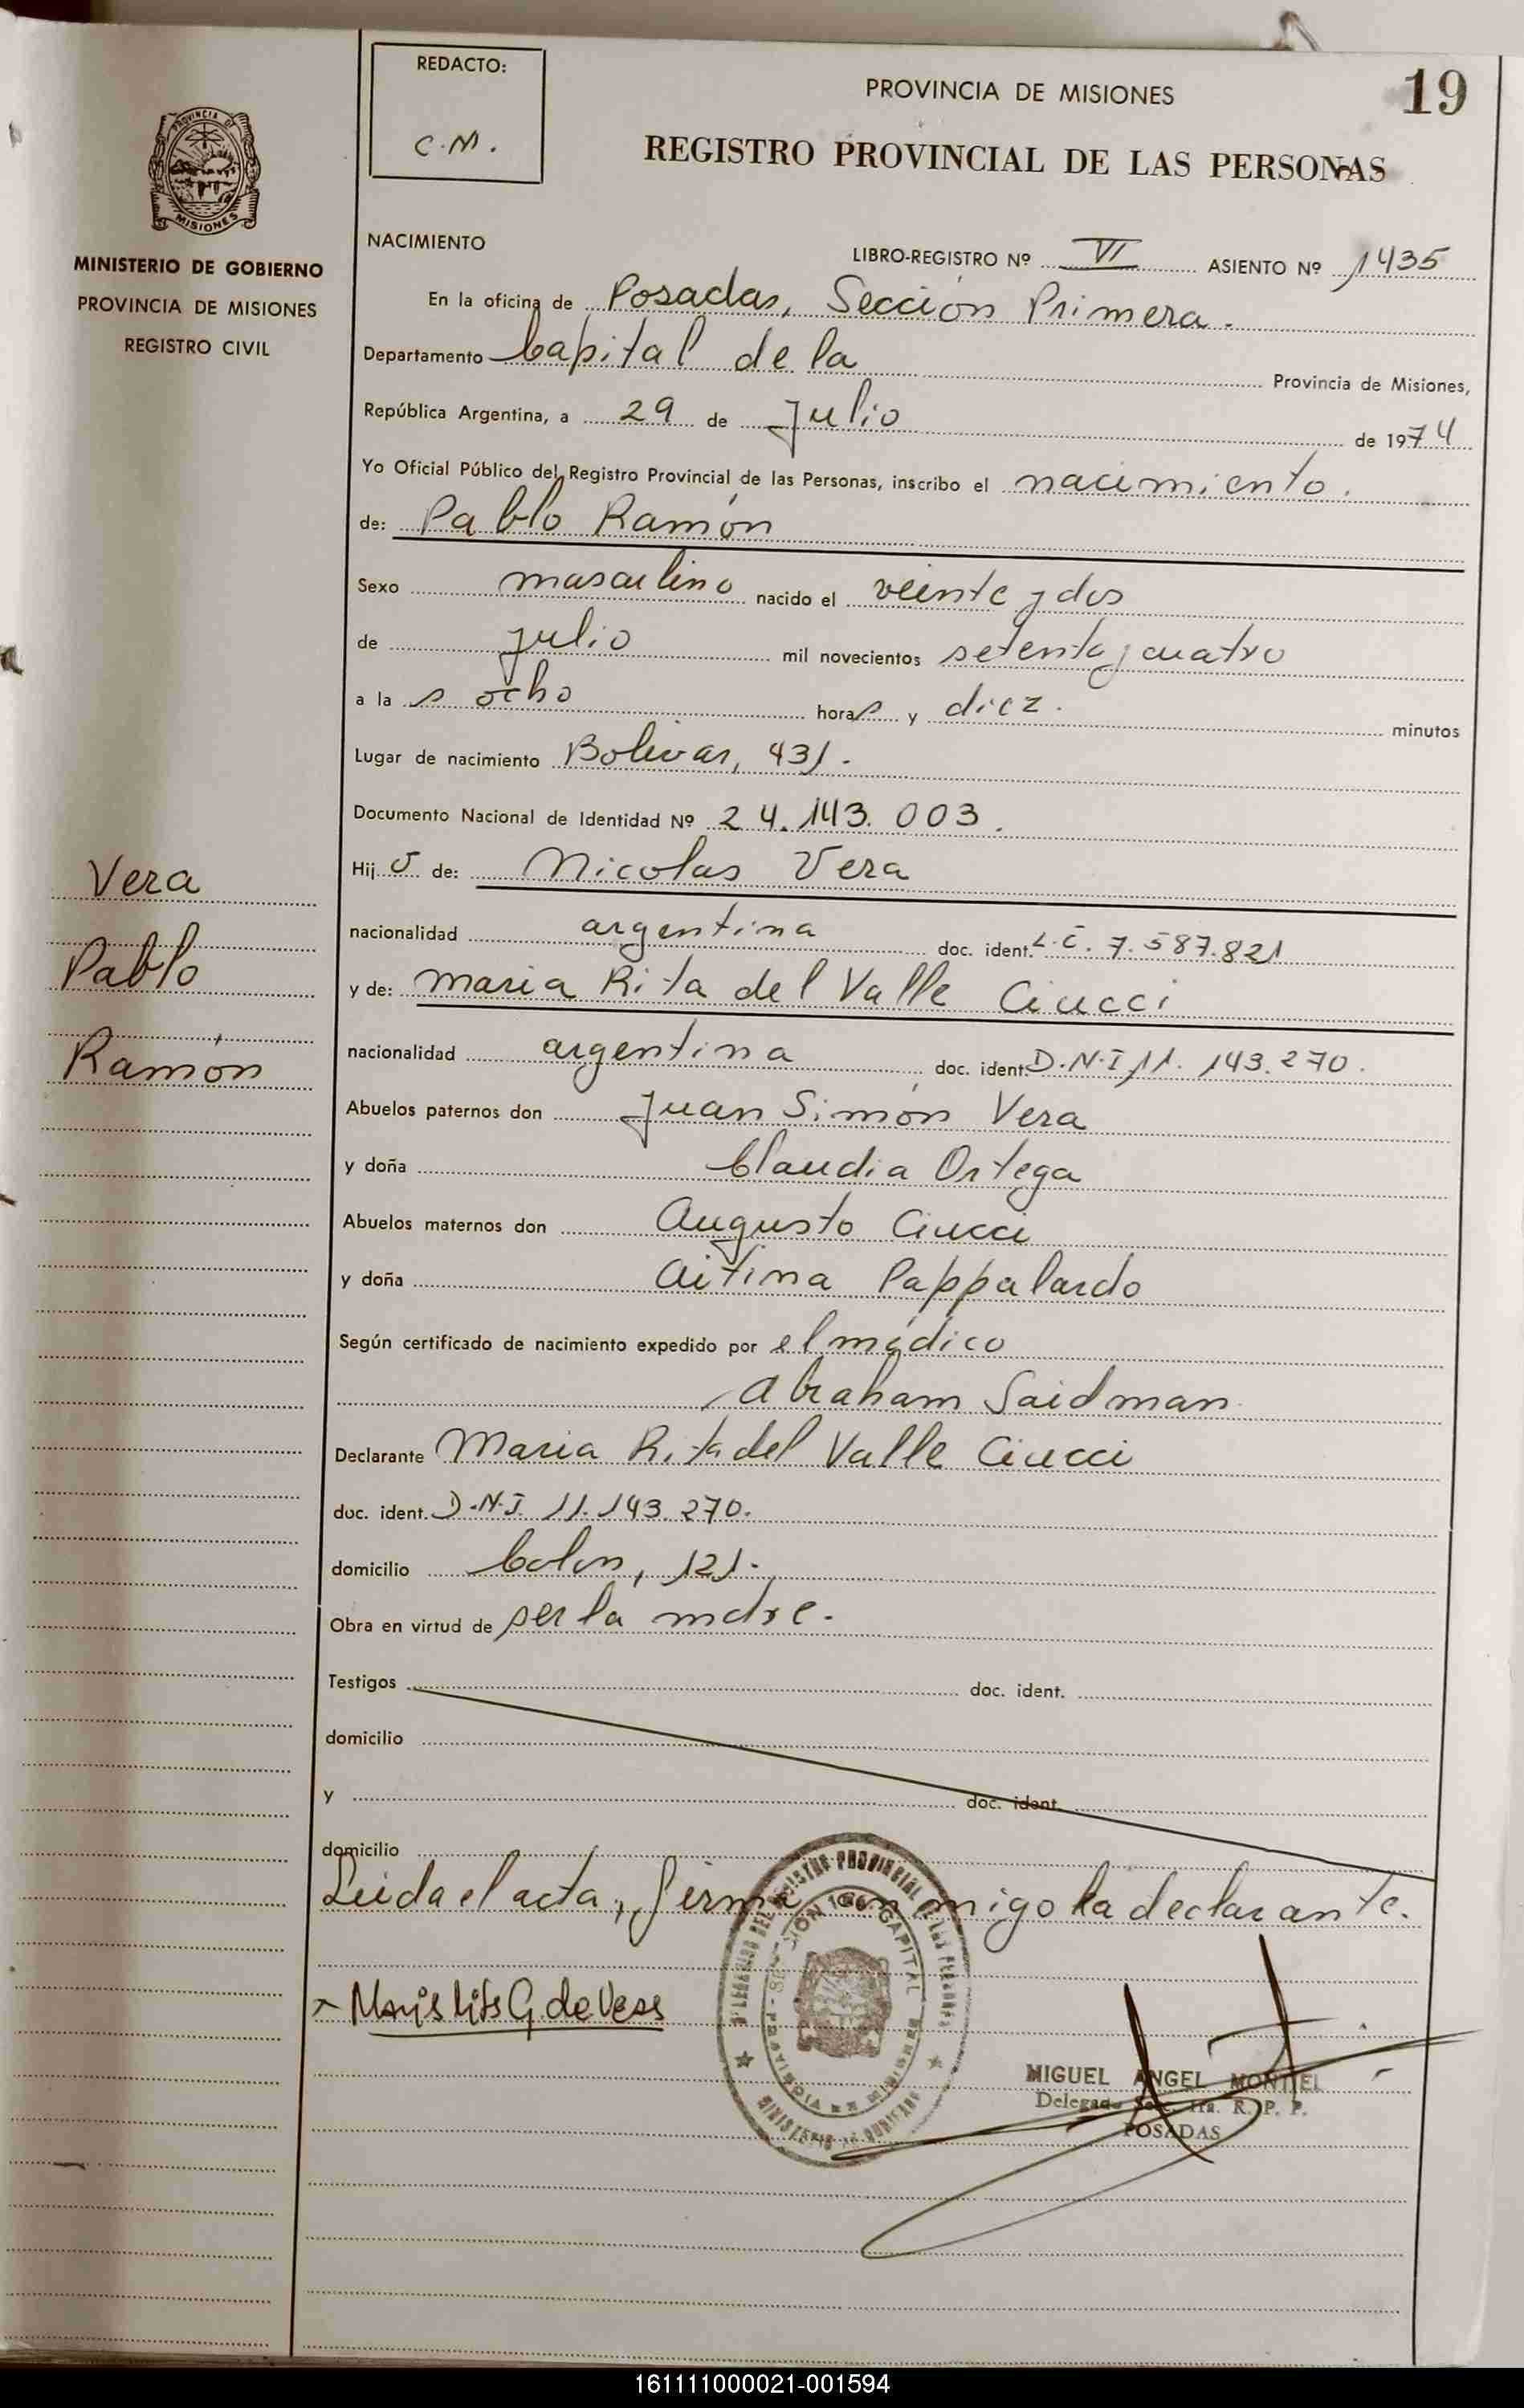 REDACTO:
C.M.
PROVINCIA DE MISIONES
19
REGISTRO PROVINCIAL DE LAS PERSONAS
PROVINCIA DE
MISIONES
MINISTERIO DE GOBIERNO
PROVINCIA DE MISIONES
REGISTRO CIVIL
NACIMIENTO
LIBRO-REGISTRO Nº VI ASIENTO Nº 1435
En la oficina de Posadas, Sección Primera.
Departamento Capital de la Provincia de Misiones,
República Argentina, a 29 de Julio de 1974
Yo Oficial Público del Registro Provincial de las Personas, inscribo el nacimiento.
de: Pablo Ramón
Sexo masculino nacido el veinte y dos
de julio mil novecientos setenta y cuatro
a la s ocho horas y diez. minutos
Lugar de nacimiento Bolivar, 431.
Documento Nacional de Identidad Nº 24.143.003.
Hijo de: Nicolas Vera
nacionalidad argentina doc. ident. L.E. 7.587.821
y de: Maria Rita del Valle Ciucci
nacionalidad argentina doc. ident. D.N.I 11.143.270.
Abuelos paternos don Juan Simón Vera
y doña Claudia Ortega
Abuelos maternos don Augusto Ciucci
y doña Aitina Pappalardo
Según certificado de nacimiento expedido por el médico
Abraham Saidman
Declarante Maria Rita del Valle Ciucci
doc. ident. D.N.I. 11.143.270.
domicilio Colon, 121.
Obra en virtud de ser la mdre.
Testigos doc. ident.
domicilio
y doc. ident.
domicilio
Leida el acta, firma conmigo la declarante.
Vera
Pablo
Ramón
MIGUEL ANGEL MONTIEL
Delegado Sec. 1ra. R. P. P.
POSADAS
161111000021-001594